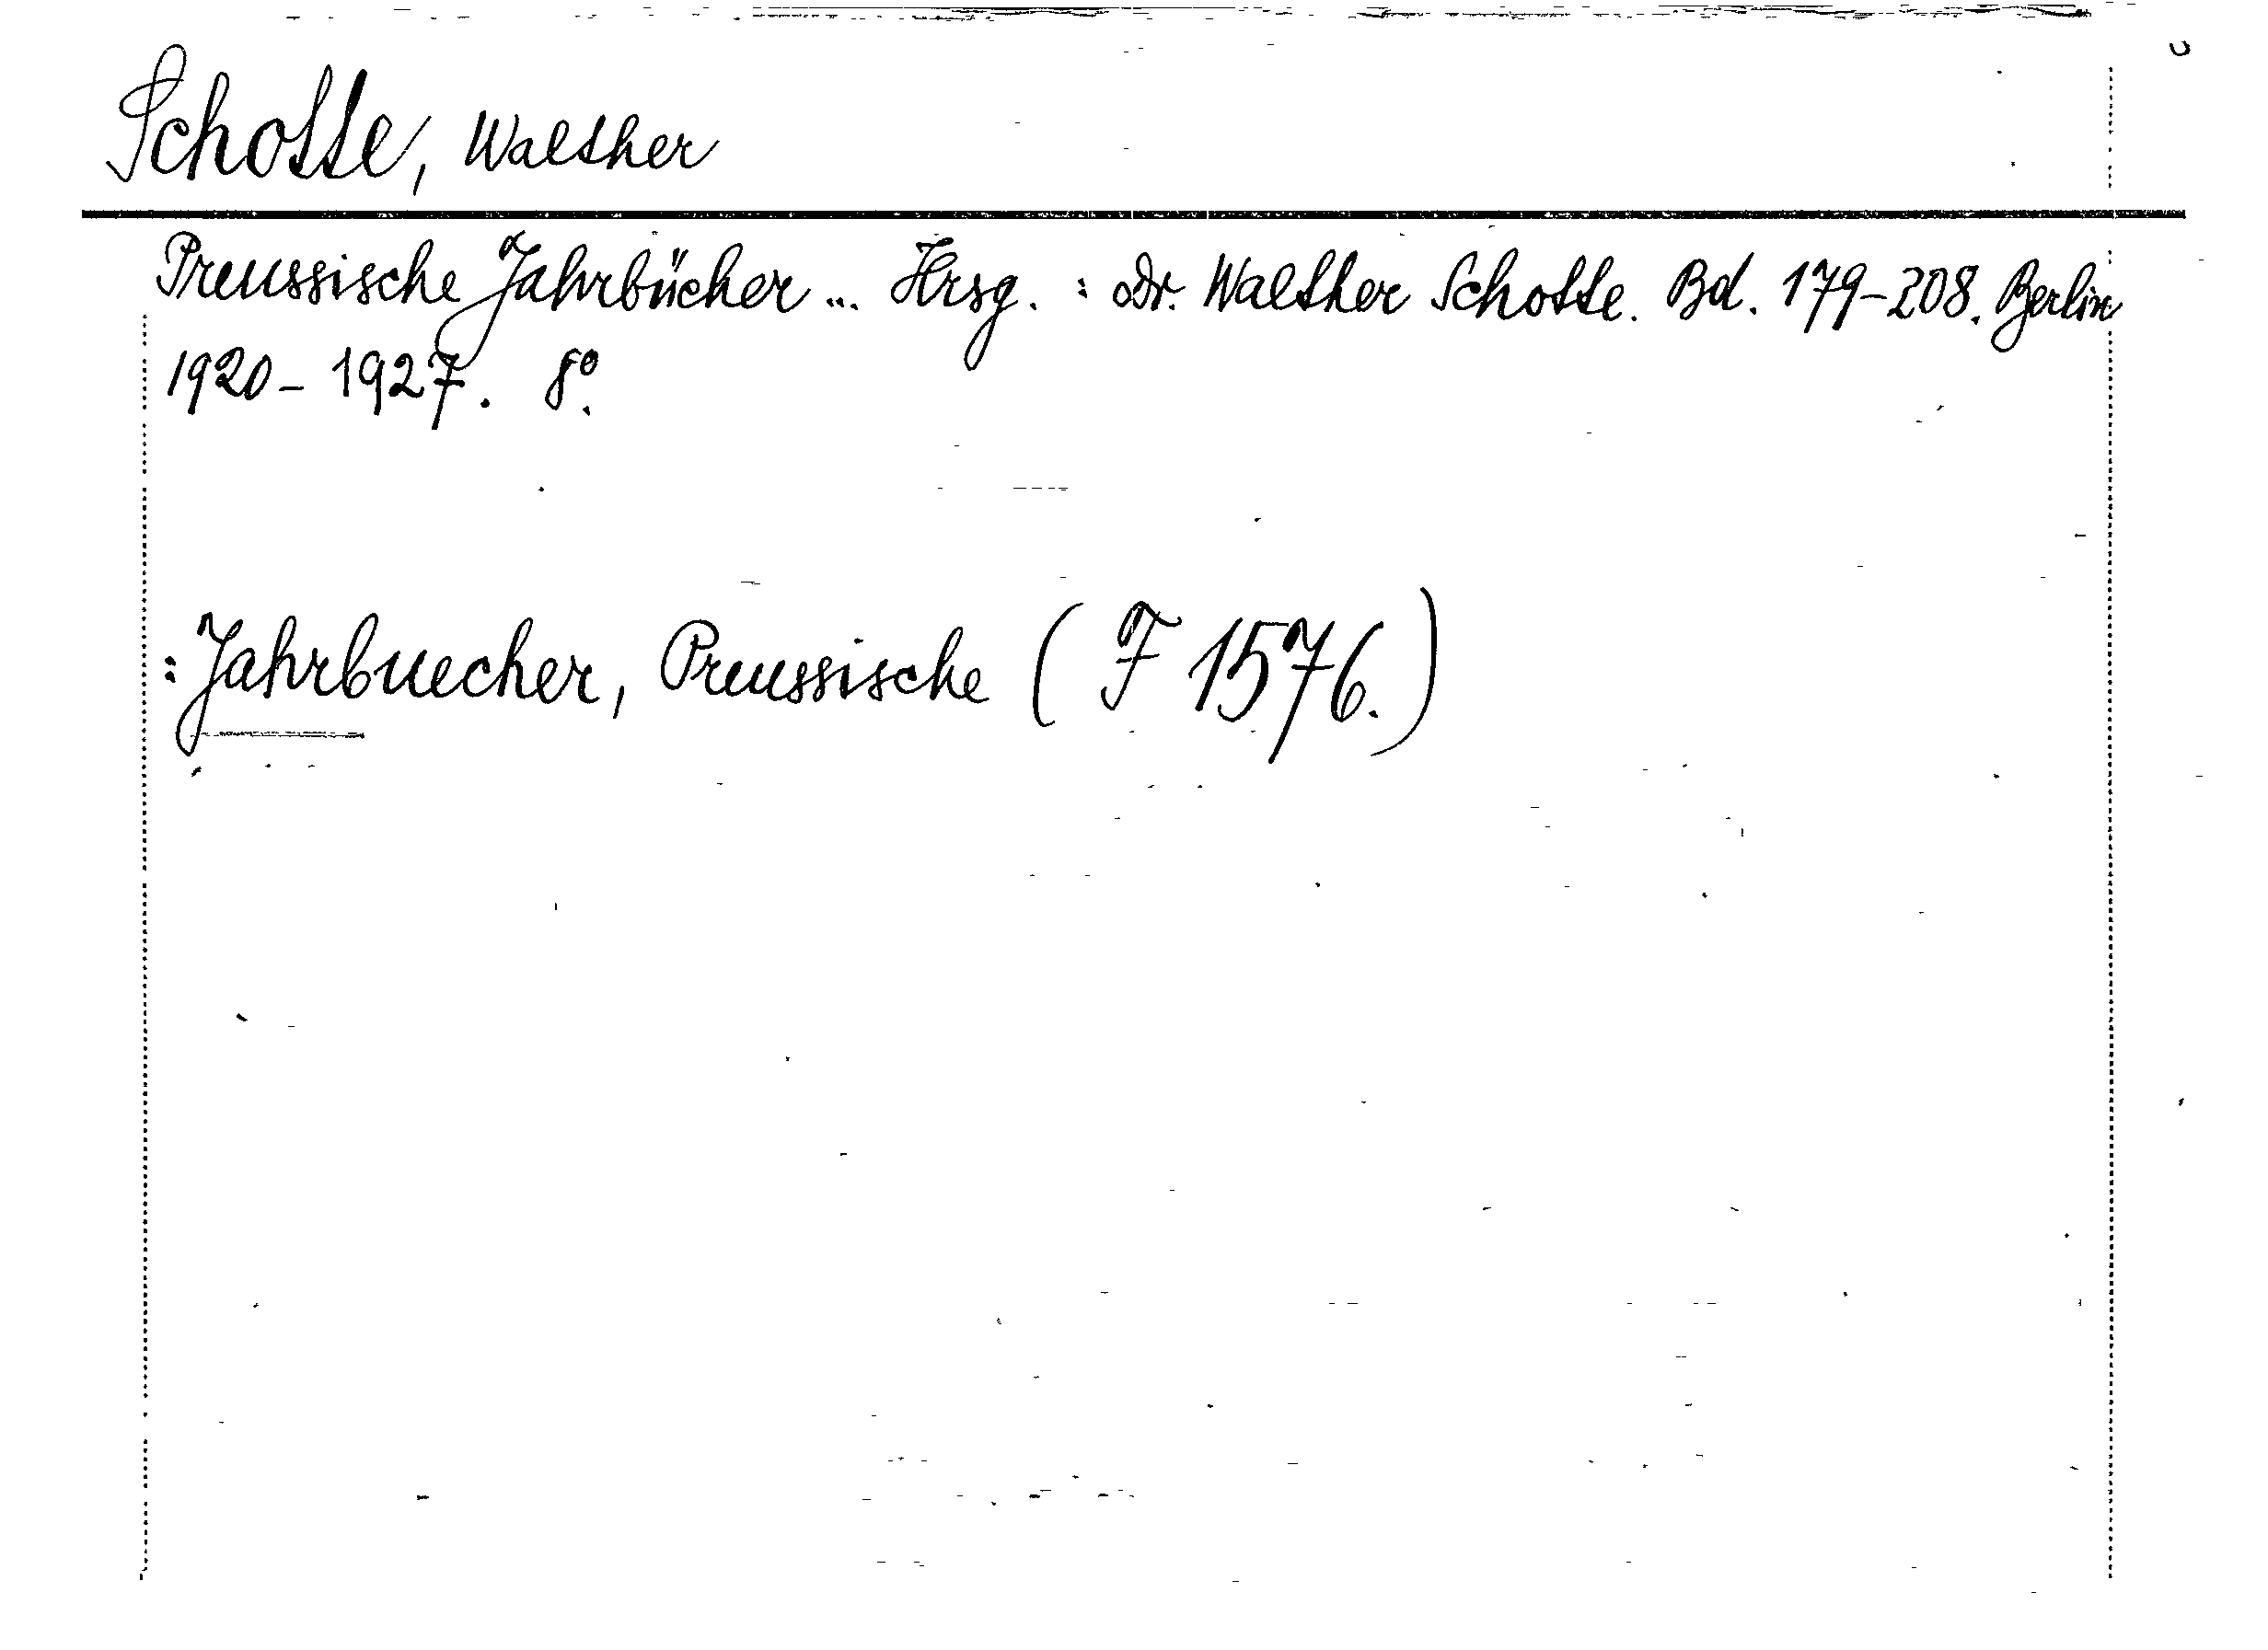 Schotte, Walther
Preussische Jahrbücher ... Hrsg. : Dr. Walther Schotte. Bd. 179-208. Berlin
1920-1927. 8°.
: Jahrbuecher, Preussische ( F 1576. )